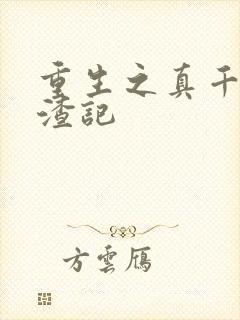 重生之真千
渣記
方雲鴈